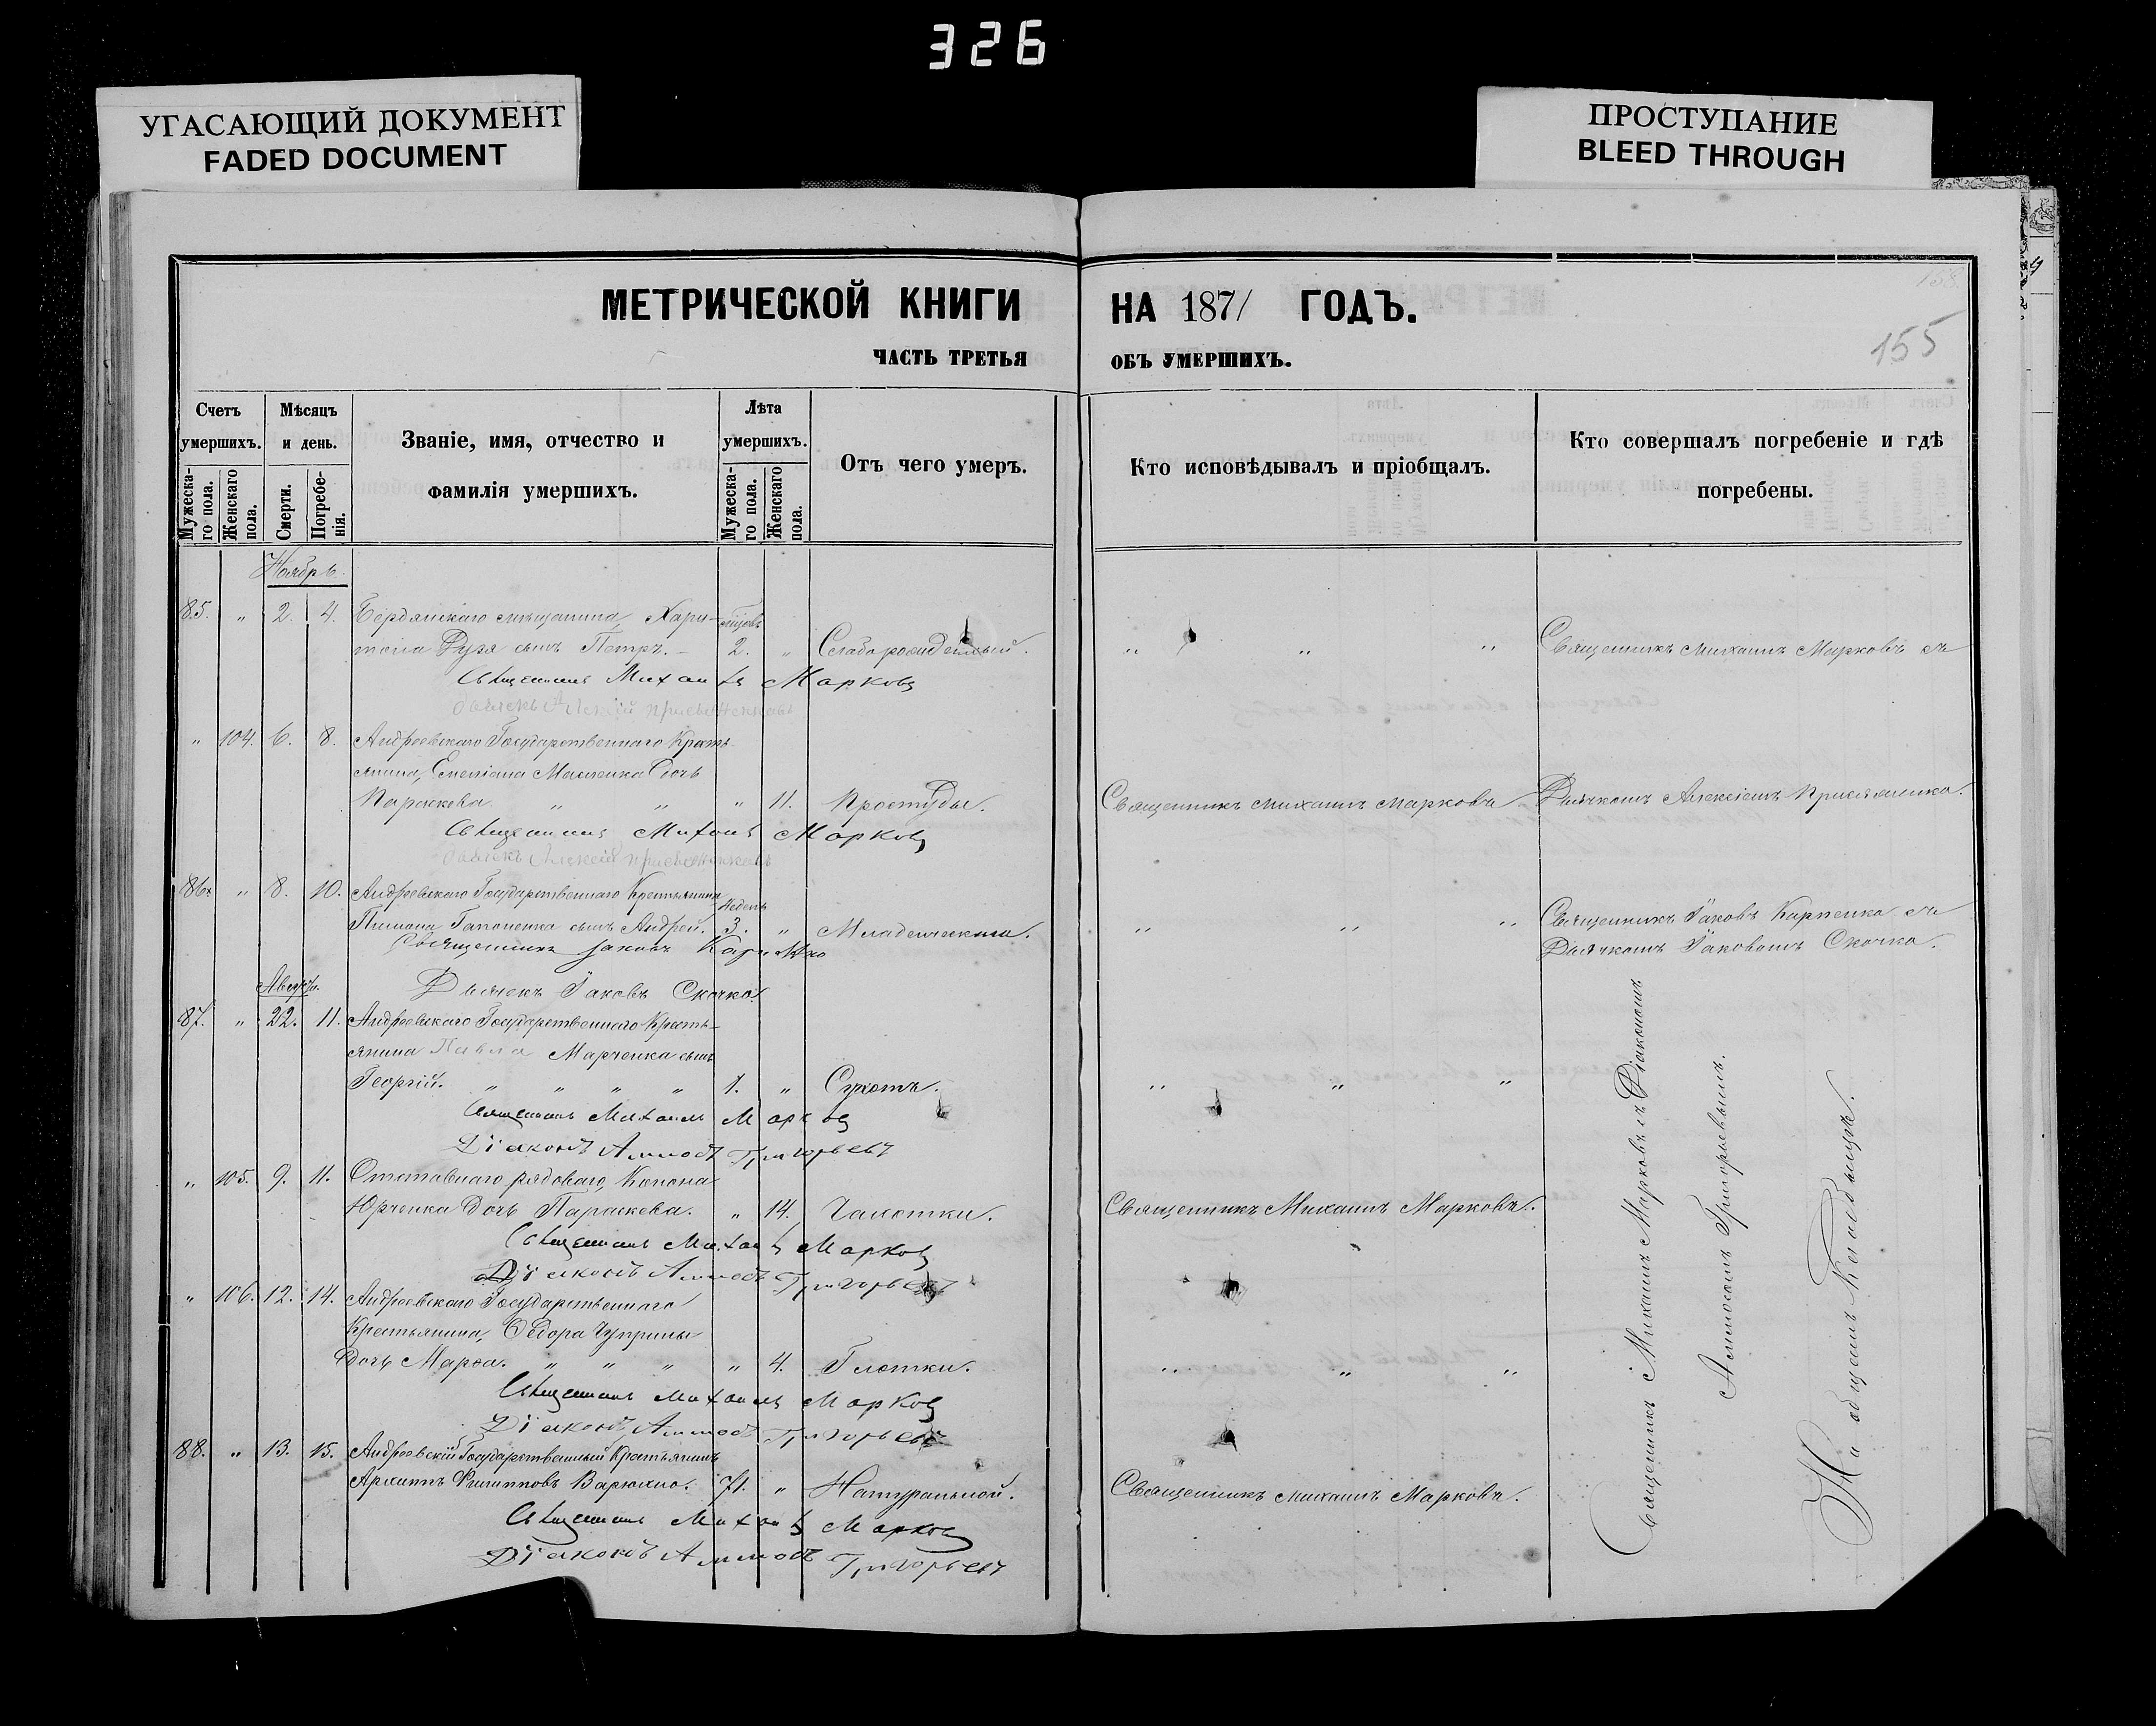 326
УГАСАЮЩИЙ ДОКУМЕНТ
FADED DOCUMENT
ПРОСТУПАНИЕ
BLEED THROUGH
МЕТРИЧЕСКОЙ КНИГИ НА 1871 ГОДЪ.
155
ЧАСТЬ ТРЕТЬЯ ОБЪ УМЕРШИХЪ.
Счетъ умершихъ.
Мужеска-го пола.
Женскаго пола.
Мѣсяцъ и день.
Смерти.
Погребе-нія.
Званіе, имя, отчество и
фамилія умершихъ.
Лѣта умершихъ.
Мужеска-го пола.
Женскаго пола.
Отъ чего умеръ.
Кто исповѣдывалъ и пріобщалъ.
Кто совершалъ погребеніе и гдѣ
погребены.
Ноябрь
85. " 2. 4. Бердянскаго мѣщанина, Хари-
тона сынъ Петръ. 2. " Слаборожденный. " " " Священникъ Михаилъ Марковъ съ
Священникъ Михаилъ Марковъ
" 104. 6. 8. Андреевскаго Государственнаго Кресть
янина, Емеліана дочь
Параскева. " " " 11. Простуды. Священникъ Михаилъ Марковъ Дьячкомъ Алексіемъ
Священникъ Михаилъ Марковъ
86. " 8. 10. Андреевскаго Государственнаго Крестьянина недѣль
Пимона Гапоненка сынъ Андрей. 3. " Младенческаго. " " " Священникъ Іаковъ Карпенко съ
Дьячкомъ Іаковомъ Скочко.
Священникъ Іаковъ Карпенко
Дьячекъ Іаковъ Скочко
87. " 22. 11. Андреевскаго Государственнаго Кресть-
янина Павла Марченка сынъ
Георгій. " " " " 1. " Сухотъ. " " "
Священникъ Михаилъ Марковъ
Діаконъ Аммосъ Григорьевъ
" 105. 9. 11. Отставнаго рядоваго, Конона
Юрченка дочь Параскева. " 14. Чахотки. Священникъ Михаилъ Марковъ.
Священникъ Михаилъ Марковъ
Діаконъ Аммосъ Григорьевъ
" 106. 12. 14. Андреевскаго Государственнаго
Крестьянина, Ѳедора Чуприны
дочь Марѳа. " " " " 4. Глотки. " " "
Священникъ Михаилъ Марковъ
Діаконъ Аммосъ Григорьевъ
88. " 13. 15. Андреевскій Государственный Крестьянинъ
Архипъ Филипповъ 71. " Натуральной. Священникъ Михаилъ Марковъ.
Священникъ Михаилъ Марковъ
Діаконъ Аммосъ Григорьевъ
Священникъ Михаилъ Марковъ съ Діакономъ
Аммосомъ Григорьевымъ.
На общемъ Кладбищѣ.